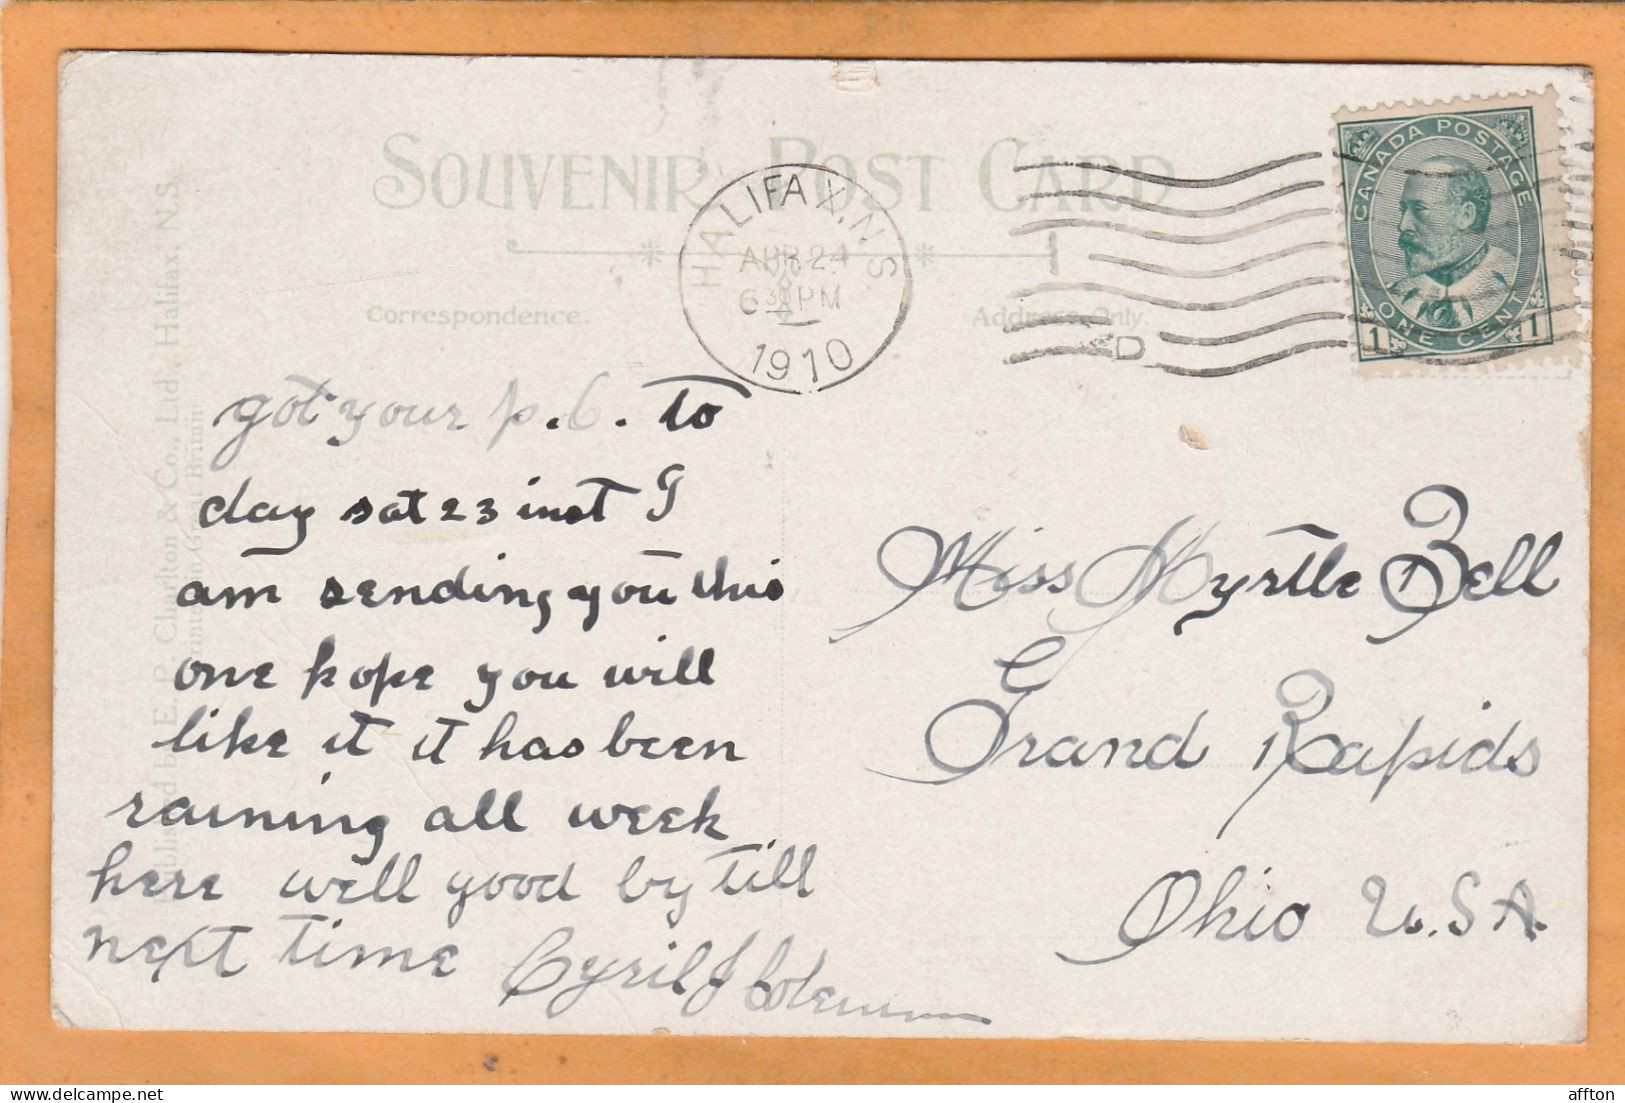 SOUVENIR POST CARD
HALIFAX, N.S.
APR 24
6 30 PM
1910
CANADA POSTAGE
ONE CENT
1 1
Correspondence.
Address Only.
got your p.c. to
day sat 23 inst I
am sending you this
one hope you will
like it it has been
raining all week
here well good by till
next time Cyril J
Miss Myrtle Bell
Grand Rapids
Ohio U.S.A.
Published by E. P. Charlton & Co., Ltd., Halifax, N.S.
Printed in Great Britain
affton